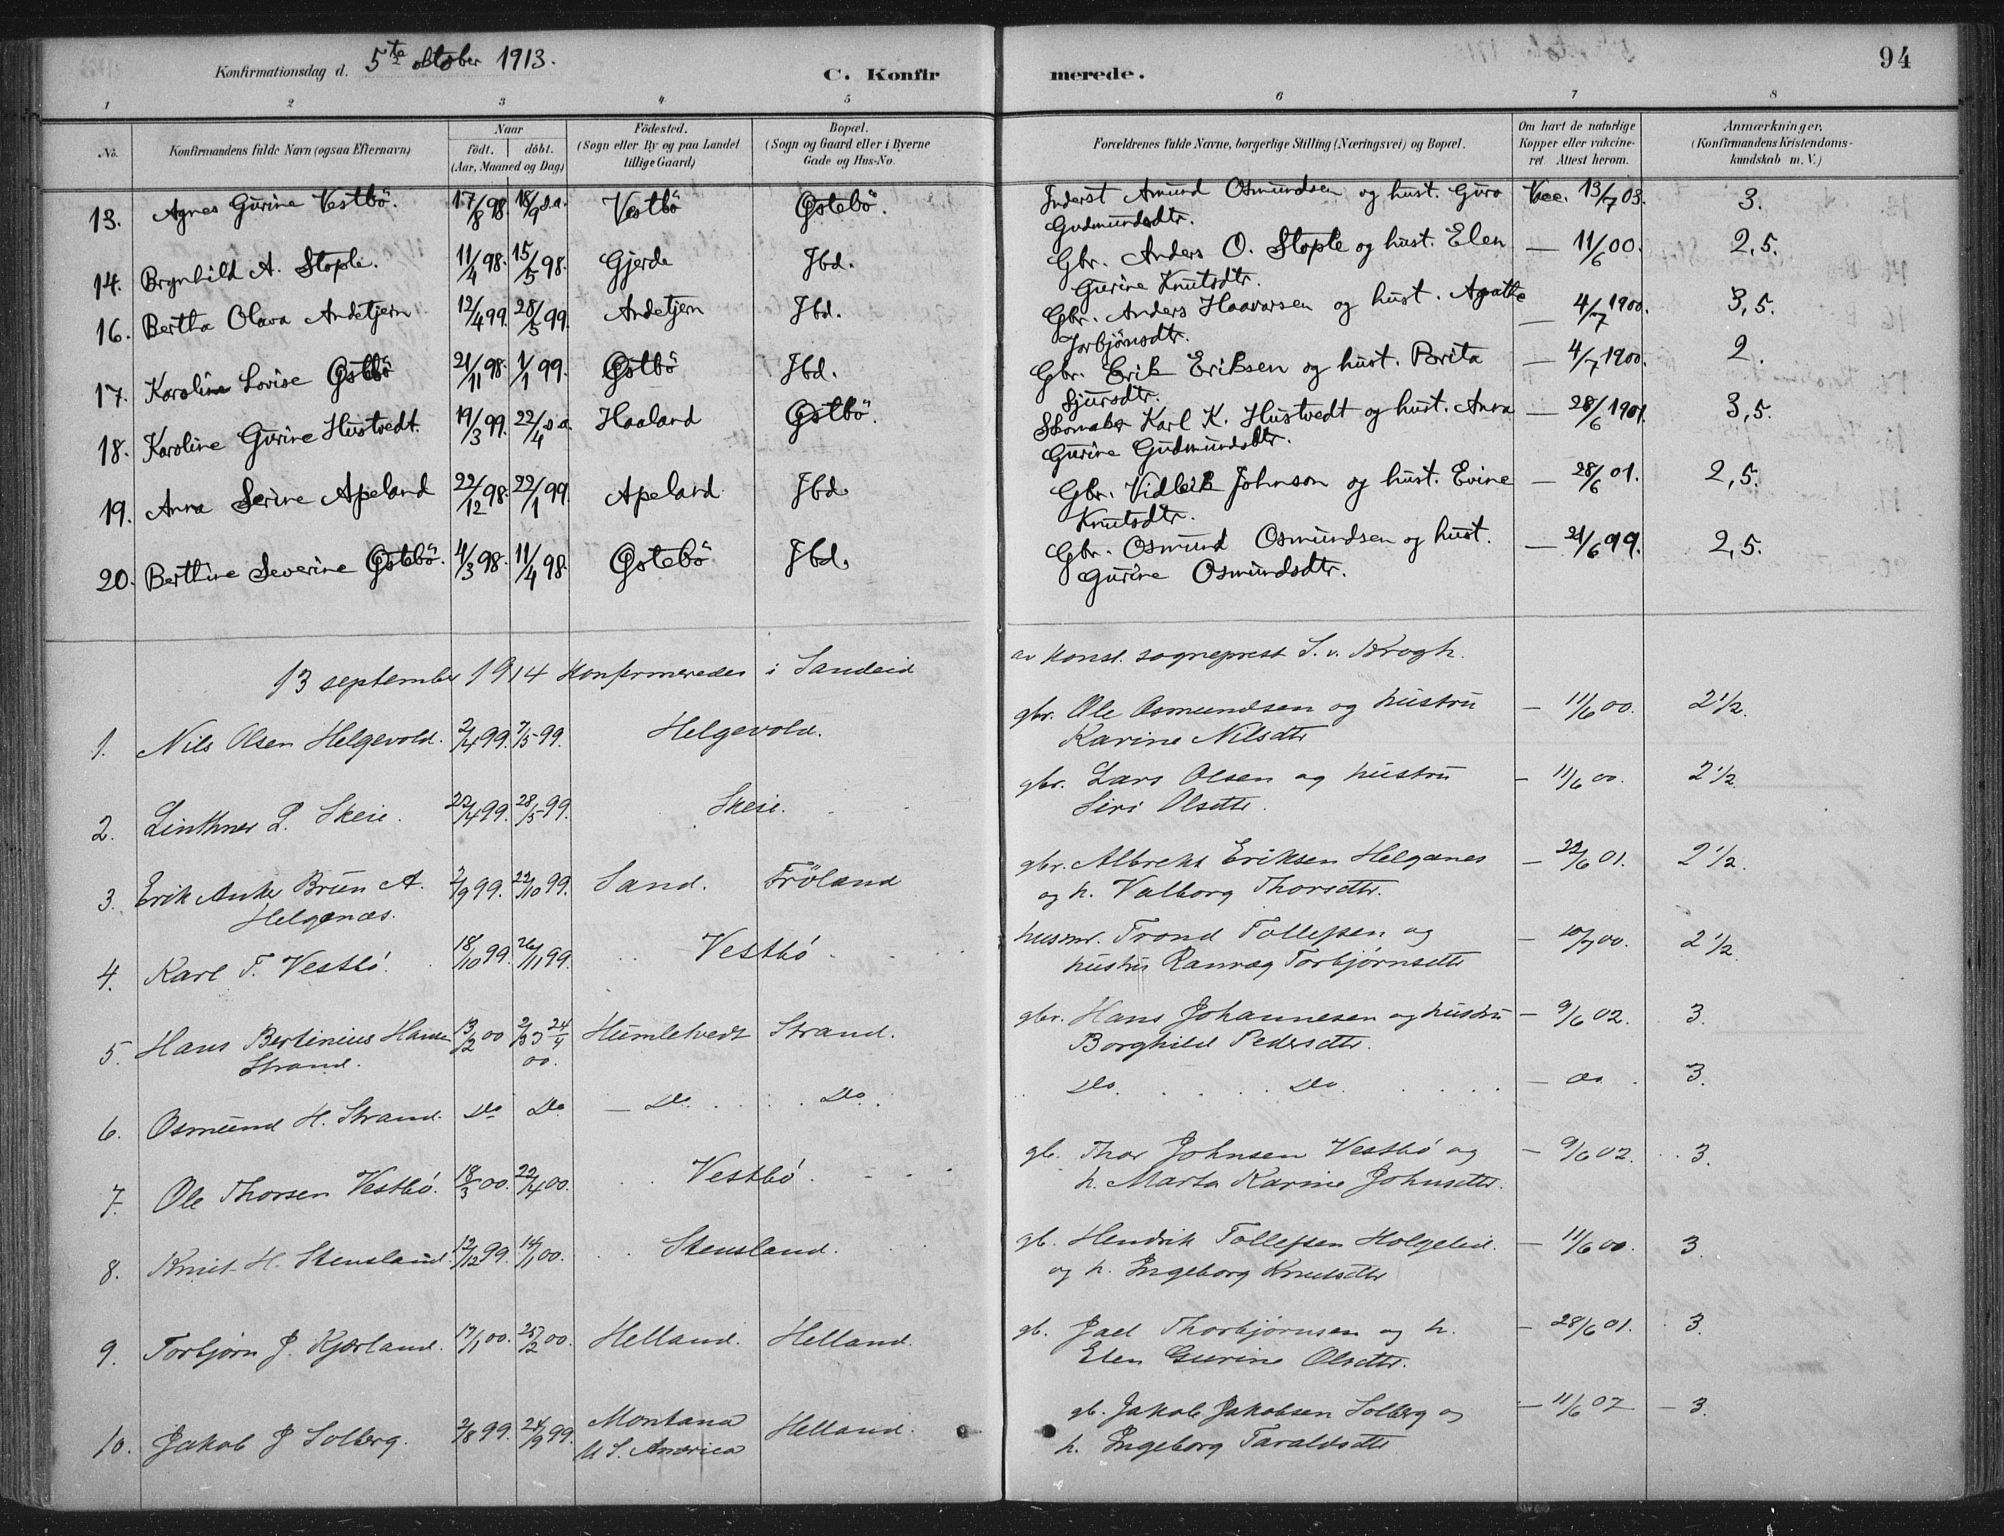 Konfirmationsdag d. 5te oktober 1913. C. Konfir merede. 94
1 2 3 4 5 6 7 8
No. Konfirmandens fulde Navn (ogsaa Efternavn)
Naar
födt. döbt.
(Aar, Maaned og Dag)
Födested.
(Sogn eller By og paa Landet
tillige Gaard)
Bopæl.
(Sogn og Gaard eller i Byerne
Gade og Hus-No.
Forældrenes fulde Navne, borgerlige Stilling (Næringsvei) og Bopæl.
Om havt de naturlige
Kopper eller vakcine-
ret. Attest herom.
Anmærkninger.
(Konfirmandens Kristendoms-
kundskab m. V.)
13. Agnes Gurine Vestbö. 17/8 98. 18/9 s.a. Vestbö Østebö. Inderst Amund Osmundsen og hust. Guro Vac. 13/7 03. 3.
Gudmundsdtr.
14. Brynhild A. Stople. 11/4 98. 15/5 98. Gjerde Ibd. Gbr. Anders O. Stople og hust. Elen — 11/6 00. 2,5.
Gurine Knutsdtr.
16. Bertha Olava Andetjern 12/4 99. 28/5 99. Andetjern Ibd. Gbr. Anders Haavarsen og hust. Agathe — 4/7 1900. 3,5.
Torbjörnsdtr.
17. Karoline Lovise Østbö 21/11 98. 1/1 99. Østbö Ibd. Gbr. Erik Eriksen og hust. Brita — 4/7 1900. 2.
Sjursdtr.
18. Karoline Gurine Hustvedt. 19/3 99. 22/4 s.a. Haaland Østbö. Skomaker Karl K. Hustvedt og hust. Anna — 28/6 1901. 3,5.
Gurine Gudmundsdtr.
19. Anna Serine Apeland 22/12 98. 22/1 99. Apeland Ibd. Gbr. Vidleik Johnson og hust. Evine — 28/6 01. 2,5.
Knutsdtr.
20. Berthine Severine Østebö. 4/3 98. 11/4 98. Østebö Ibd. Gbr. Osmund Osmundsen og hust. — 21/6 99. 2,5.
Gurine Osmundsdtr.
13 september 1914 konfirmeredes i Sandeid av konst. sogneprest S. v. Krogh.
1. Nils Olsen Helgevold. 2/4 99. 7/5 99. Helgevold. gbr. Ole Osmundsen og hustru — 11/6 00. 2 1/2.
Karine Nilsdtr
2. L. Skeie. 22/4 99. 28/5 99. Skeie. gbr. Lars Olsen og hustru — 11/6 00. 2 1/2.
Siri Olsdtr.
3. Erik Anker Brun A. 2/9 99. 22/10 99. Sand. Fröland gbr. Albrekt Eriksen Helganes — 22/6 01. 2 1/2.
Helganæs. og h. Valborg Thorsdtr.
4. Karl T. Vestbó. 18/10 99. 26/11 99. Vestbó husmr. Trond Tollefsen og — 10/7 00. 2 1/2.
hustru Ranvæg Torbjörnsdtr
5. Hans Bertinius Hansen 13/2 00 Humletvedt Strand. gbr. Hans Johannesen og hustru — 9/6 02. 3.
Strand. 00. Borghild Pedersdtr.
6. Osmund H. Strand. Do Do — Do. Do. Do. Do. — do. 3.
7. Ole Thorsen Vestbó. 18/3 00. 22/4 00. Vestbó. gb. Thor Johnsen Vestbó og — 9/6 02. 3.
h. Marta Karine Johnsdtr.
8. Knut H. Stensland. 12/12 99. 14/1 00. Stensland. gb. Hendrik Tollefsen Holgeleid. — 11/6 00. 3.
og h. Ingeborg Knutsdtr
9. Torbjörn J. Kjærland. 17/1 00. 25/2 00. Helland. Helland. gb. Jael Thorbjörnsen og h. — 28/6 01. 3.
Elen Gurine Olsdtr.
10. Jakob J Solberg. 2/8 99. 24/9 99. Montana Helland. gb. Jakob Jakobsen Solberg og — 11/6 07 — 3.
U. S. America h. Ingeborg Taraldsdtr